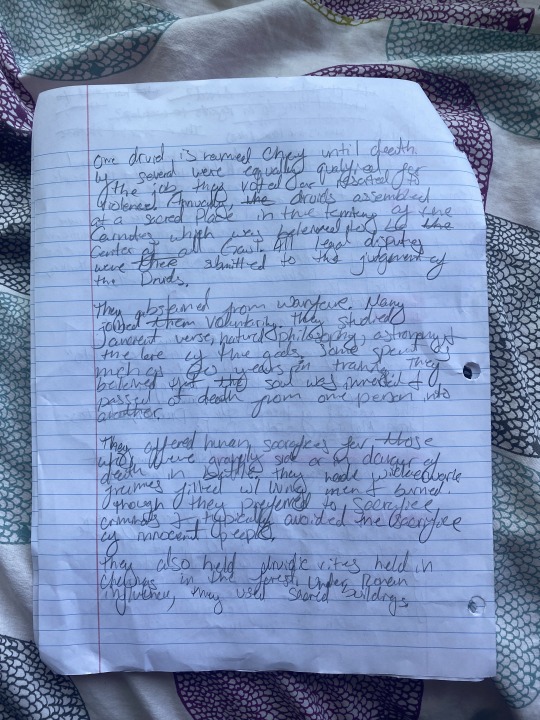 One druid is chey until death
if several were equally qualified for
the job, they voted or resorted to
violence. Annually, the druids assembled
at a sacred place in the territory of the
which was believed to the
center of all Gaul. All legal disputes
were submitted to the judgment of
the Druids.
They abstained from warfare. Many
joined them voluntarily. They studied
ancient verse, natural philosophy, astronomy &
the lore of the gods. Some spent as
much as 20 years in train. They
believed the soul was &
passed at death from one person into
another.
They offered human for those
who were gravely sick or in danger of
death in battle. They made
filled w/ living men & burned.
though they preferred to sacrifice
criminals & typically avoided the sacrifice
of innocent people.
They also held druidic rites held in
in the forest. Under Roman
influence, they used buildings.